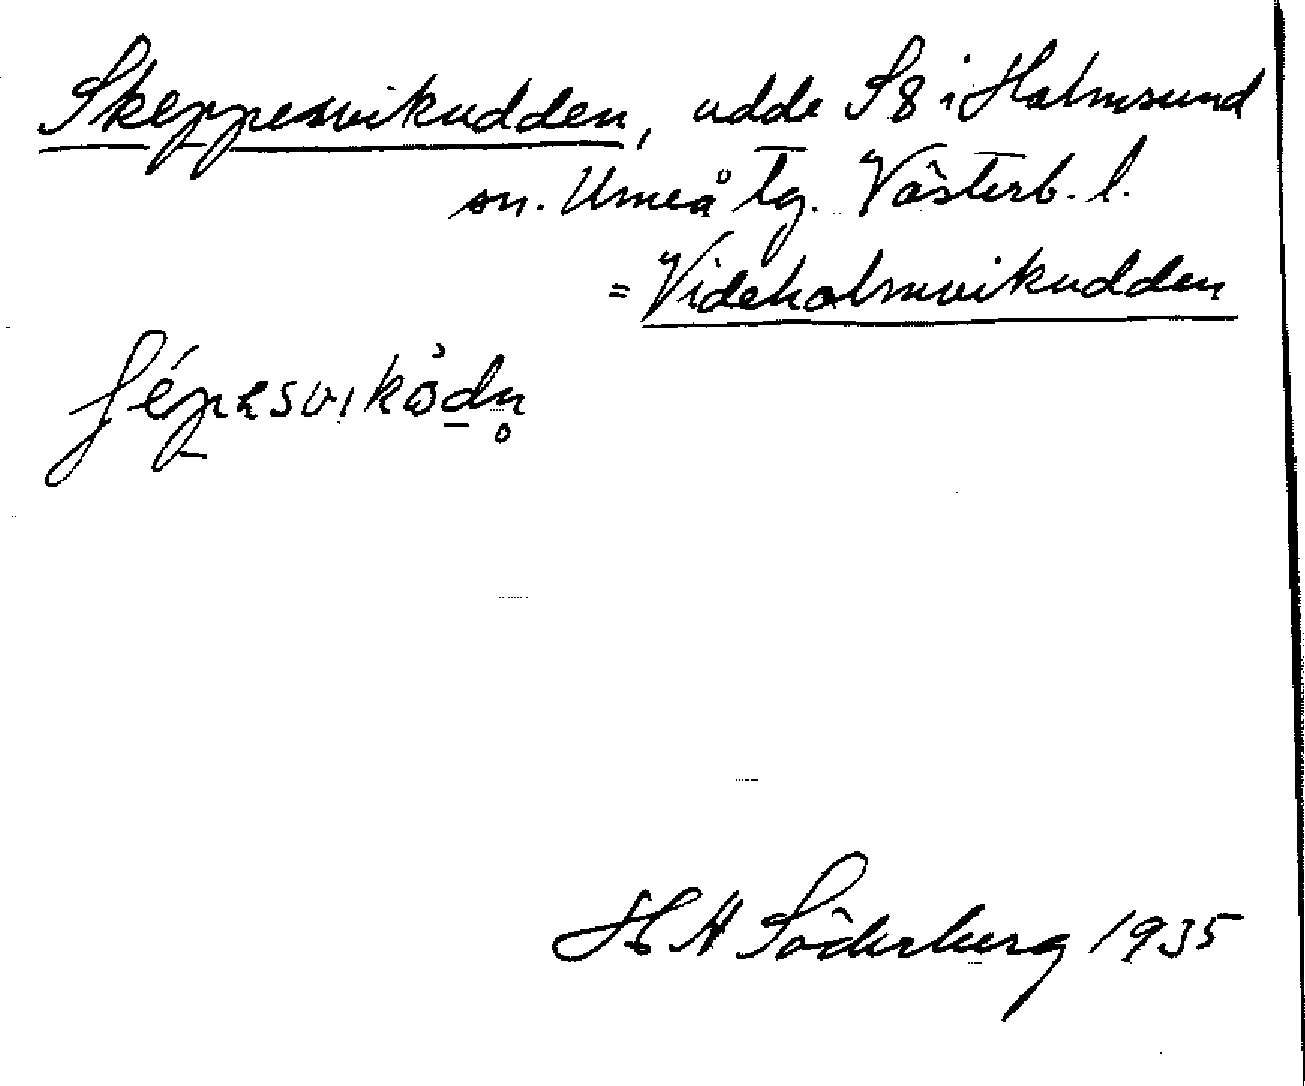 Skeppesvikudden, udde SO i Holmsund
sn. Umeå tg. Västerb. l.
= Videholmvikudden
H A Söderberg 1935